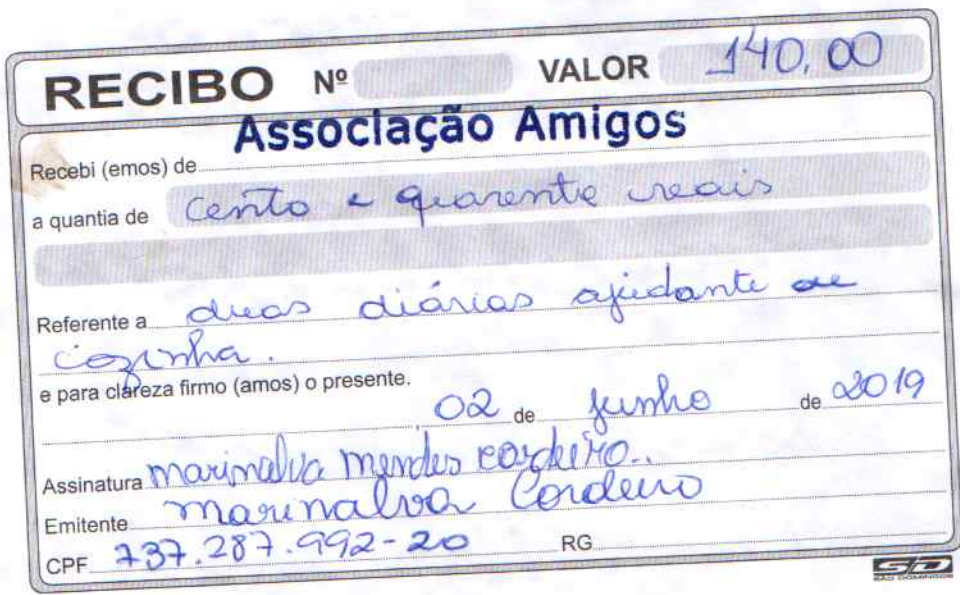 RECIBO Nº VALOR 140,00
Associação Amigos
Recebi (emos) de
a quantia de cento e quarenta reais
Referente a duas diárias ajudante de
cozinha.
e para clareza firmo (amos) o presente.
02 de junho de 2019
Assinatura marinalva mendes cordeiro..
Emitente marinalva Cordeiro
CPF 737.287.992-20 RG
SD
SÃO DOMINGOS